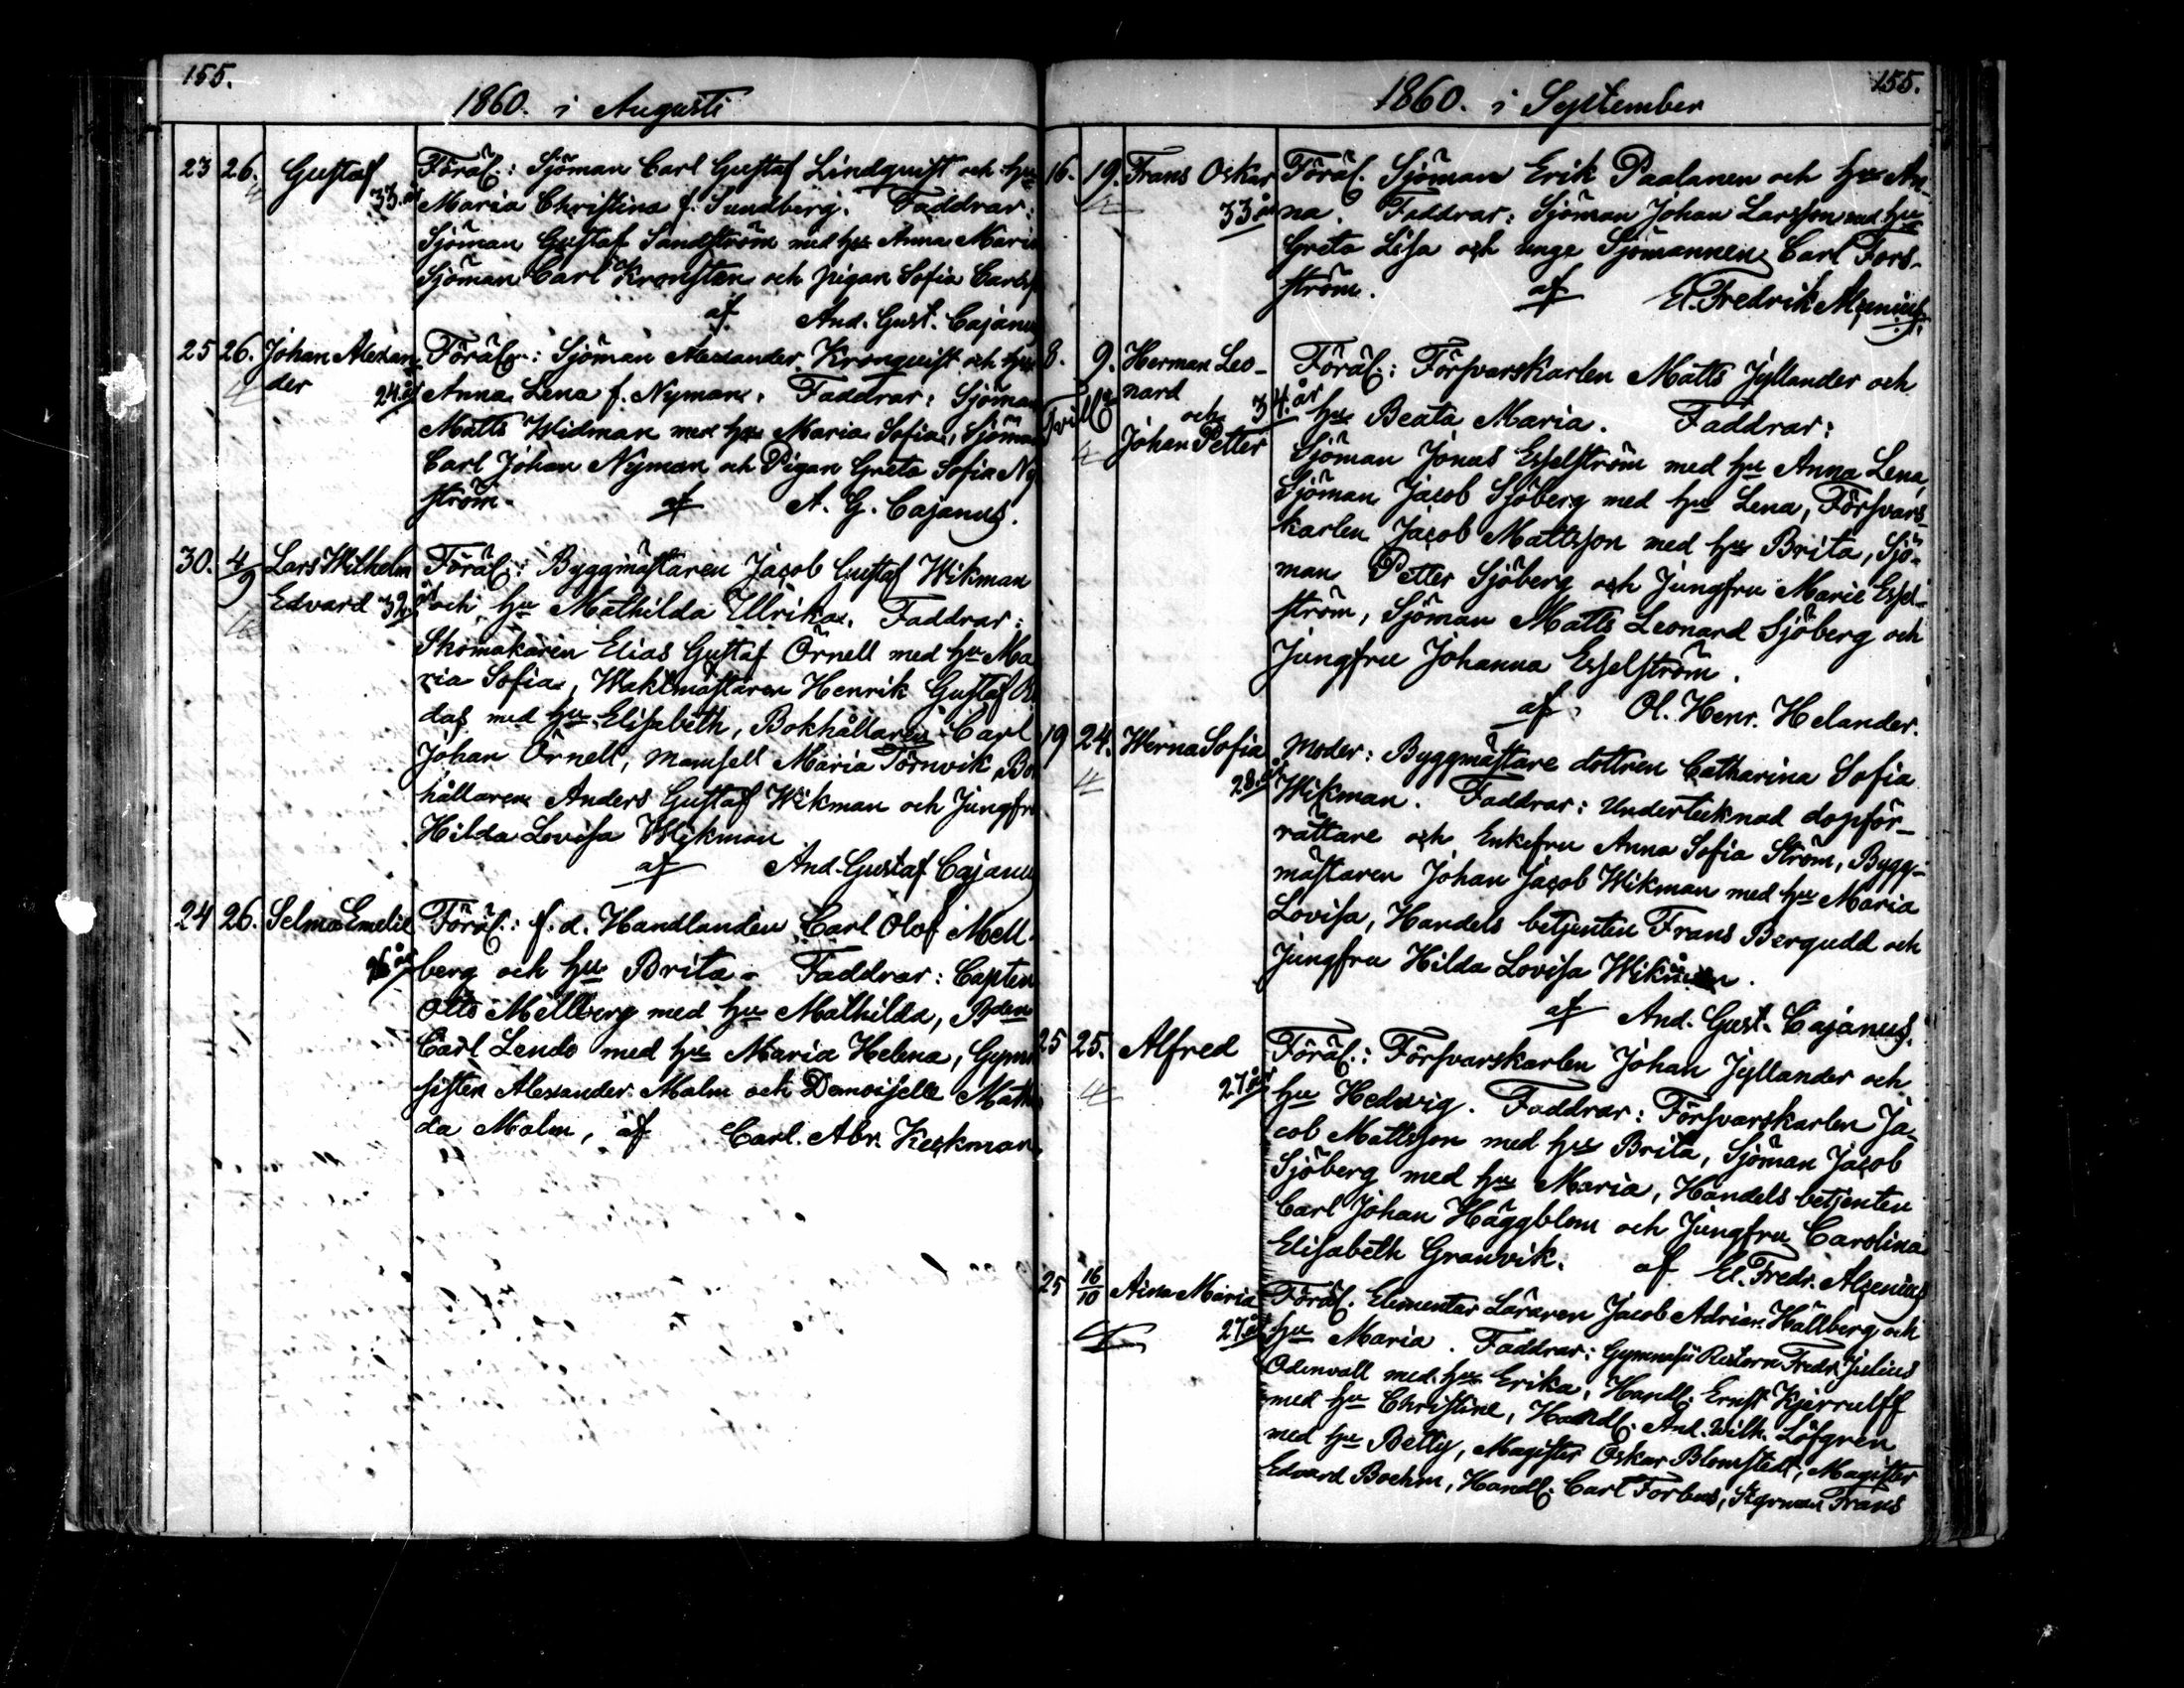 155.
1860. i Augusti
23 26. Gustaf Föräl.: Sjöman Carl Gustaf Lindquist och hu
33 år Maria Christina f. Sundberg. Faddrar:
Sjöman Gustaf Sandström med hu Anna Maria
Sjöman Carl Kronsten och pigan Sofia Carls
af And. Gust. Cajanus
25 26. Johan Alexan- Föräl.: Sjöman Alexander Kronquist och hu
der 24 år Anna Lena f. Nyman. Faddrar: Sjöman
Matts Widman med hu Maria Sofia, Sjöman
Carl Johan Nyman och Pigan Greta Sofia Ny
ström. af A. G. Cajanus.
30. 4/9 Lars Wilhelm Föräl.: Byggmästaren Jacob Gustaf Wikman
Edvard 32 år och hu Mathilda Ulrika. Faddrar:
Skomakaren Elias Gustaf Örnell med hu Ma
ria Sofia, Waktmästaren Henrik Gustaf
das med hu Elisabeth, Bokhållaren Carl
Johan Örnell, Mamsell Maria Törnvik, Bok
hållaren Anders Gustaf Wikman och Jungfru
Hilda Lovisa Wikman
af And. Gustaf Cajanus
24 26. Selma Emelie Föräl.: f. d. Handlanden Carl Olof Mell-
berg och hu Brita. Faddrar: Capten
Otto Mellberg med hu Mathilda,
Carl Lendo med hu Maria Helena, Gymna
sisten Alexander Malm och Demoiselle Mathil
da Malm, af Carl. Abr. Keckman.
155.
1860. i September
16. 19. Frans Oskar Föräl. Sjöman Erik Paalanen och hu An-
33 år na. Faddrar: Sjöman Johan Larsson med hu
Greta Lisa och unge Sjömannen Carl Fors-
ström. af E. Fredrik Alcenius.
8. 9. Herman Leo- Föräl.: Försvarskarlen Matts Jyllander och
nard och 34 år hu Beata Maria. Faddrar:
Johan Petter Sjöman Jonas Esselström med hu Anna Lena,
Sjöman Jacob Sjöberg med hu Lena, Försvars-
karlen Jacob Mattsson med hu Brita, Sjö-
man Petter Sjöberg och Jungfru Marie Essel-
ström, Sjöman Matts Leonard Sjöberg och
Jungfru Johanna Esselström.
af Ol. Henr. Helander.
19 24. Werna Sofia Moder: Byggmästare dottren Catharina Sofia
28 år Wikman. Faddrar: Undertecknad dopför-
rättare och Enkefru Anna Sofia Ström, Bygg-
mästaren Johan Jacob Wikman med hu Maria
Lovisa, Handels betjenten Frans Bergudd och
Jungfru Hilda Lovisa Wikman.
af And. Gust. Cajanus.
25 25. Alfred Föräl.: Försvarskarlen Johan Jyllander och
27 år hu Hedvig. Faddrar: Försvarskarlen Ja-
cob Mattsson med hu Brita, Sjöman Jacob
Sjöberg med hu Maria, Handels betjenten
Carl Johan Häggblom och Jungfru Carolina
Elisabeth Granvik. af E. Fredr. Alcenius
25 16/10 Aina Maria Föräl. Elementar Läraren Jacob Adrian Hällberg och
27 år hu Maria. Faddrar: Gymnasii Rectorn Fredr. Julius
Odenvall med hu Erika, Handl. Ernst Kjerrulff
med hu Christine, Handl. And. Wilh. Löfgren
med hu Betty, Magister Oskar Blomstedt, Magister
Edvard Boehm, Handl. Carl Forbus, Styrman Frans